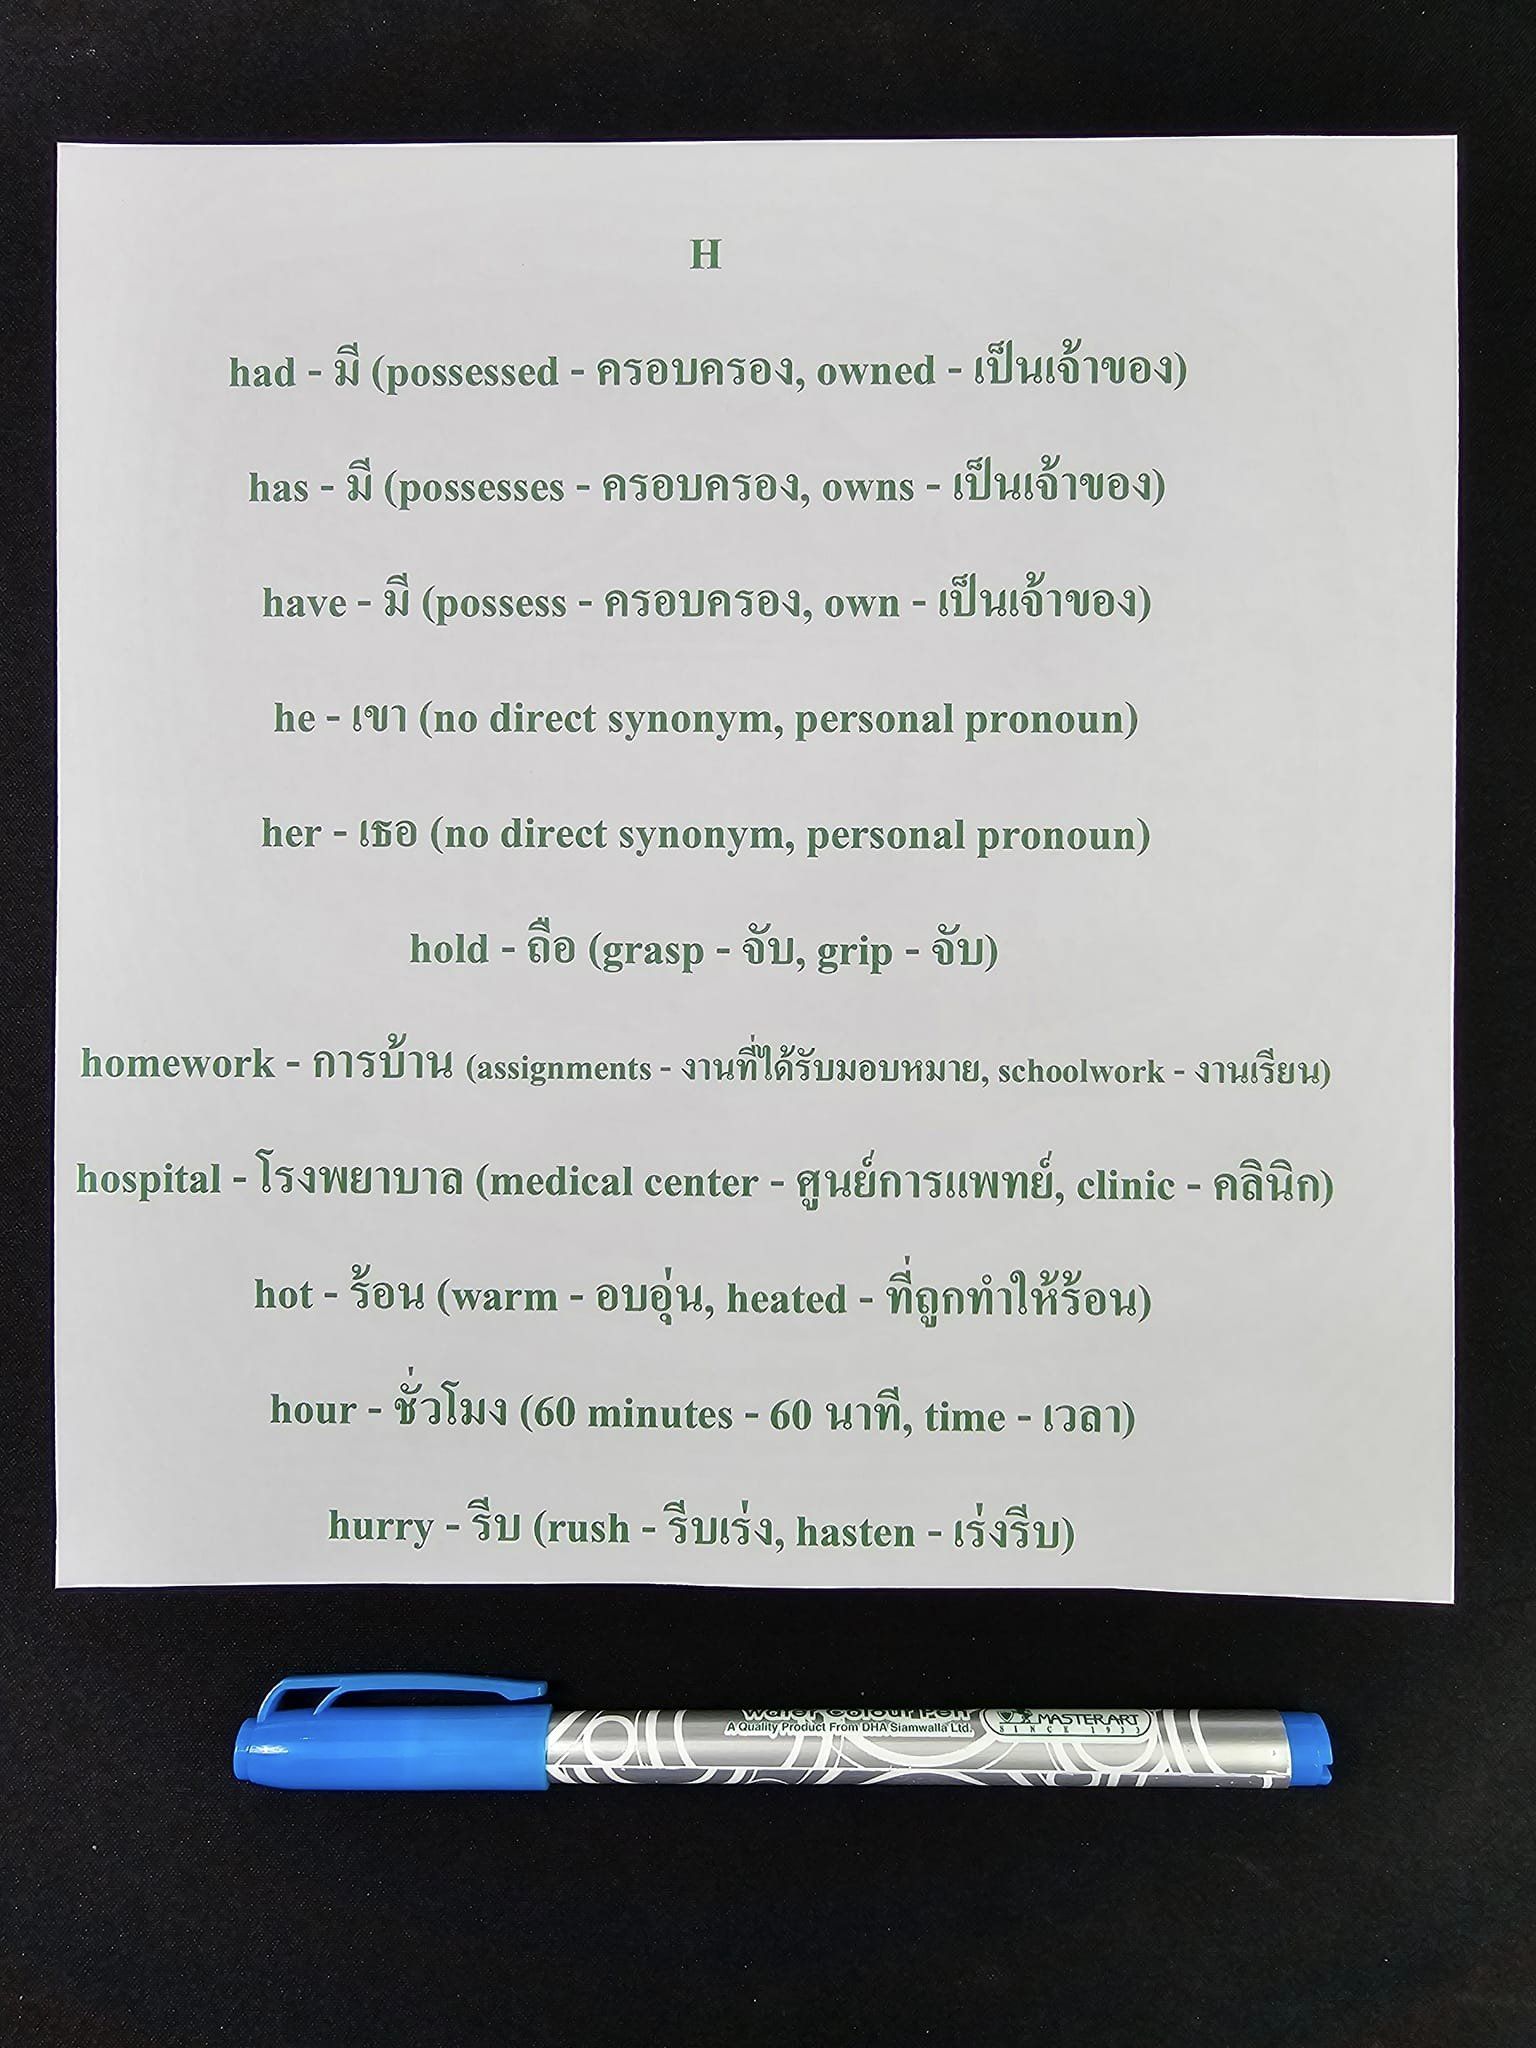 H
had - มี (possessed - ครอบครอง, owned - เป็นเจ้าของ)
has - มี (possesses - ครอบครอง, owns - เป็นเจ้าของ)
have - มี (possess - ครอบครอง, own - เป็นเจ้าของ)
he - เขา (no direct synonym, personal pronoun)
her - เธอ (no direct synonym, personal pronoun)
hold - ถือ (grasp - จับ, grip - จับ)
homework - การบ้าน (assignments - งานที่ได้รับมอบหมาย, schoolwork - งานเรียน)
hospital - โรงพยาบาล (medical center - ศูนย์การแพทย์, clinic - คลินิก)
hot - ร้อน (warm - อบอุ่น, heated - ที่ถูกทำให้ร้อน)
hour - ชั่วโมง (60 minutes - 60 นาที, time - เวลา)
hurry - รีบ (rush - รีบเร่ง, hasten - เร่งรีบ)
Water Colour Pen
A Quality Product From DHA Siamwalla Ltd.
MASTERART
SINCE 1933